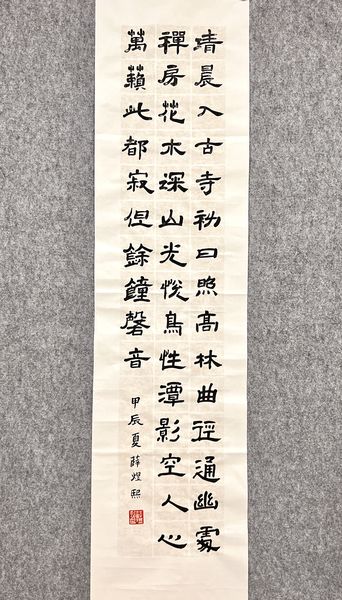 清晨入古寺初日照高林曲徑通幽處
禪房花木深山光悅鳥性潭影空人心
萬籟此都寂但餘鐘磬音
甲辰夏薛煜熙